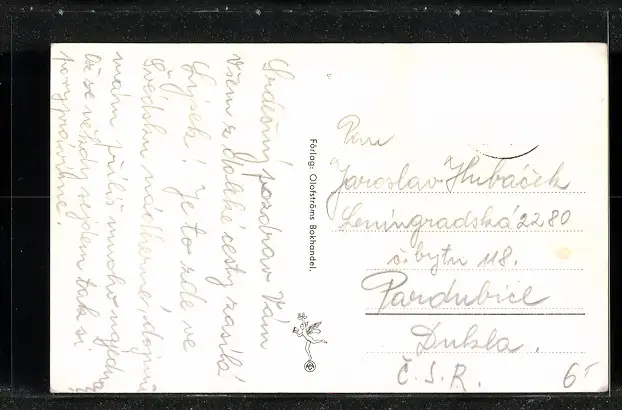 Srdečný pozdrav Vám
všem z daleké cesty zasílá
Lysek! Je to zde ve
Švédsku nádherné, dojmů
mám příliš mnoho najednou
Až se někdy sejdem tak si
popovídáme.
Förlag: Olofströms Bokhandel.
Pan
Jaroslav Hubáček
Leningradská 2280
č. bytu 118.
Pardubice
Dukla.
Č.S.R.
6